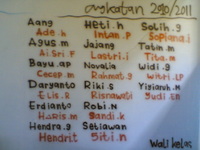 angkatan 2010/2011
Aang Heti.n Solih.g
Ade.h Intan.P Sopiana.l
Agus m Jajang Tatin.m
Ai.Sri.F Lastri.i Tita.m
Bayu.ap Novalia Widi.g
Cecep.m Rahmat.g Witri.LP
Daryanto Riki.s Yigiaruh.n
Elis.R Risnawati Yudi.En
Erdianto Robi.N
Haris.m Sandi.k
Hendra.g Setiawan
Hendrit Siti.n
Wali kelas